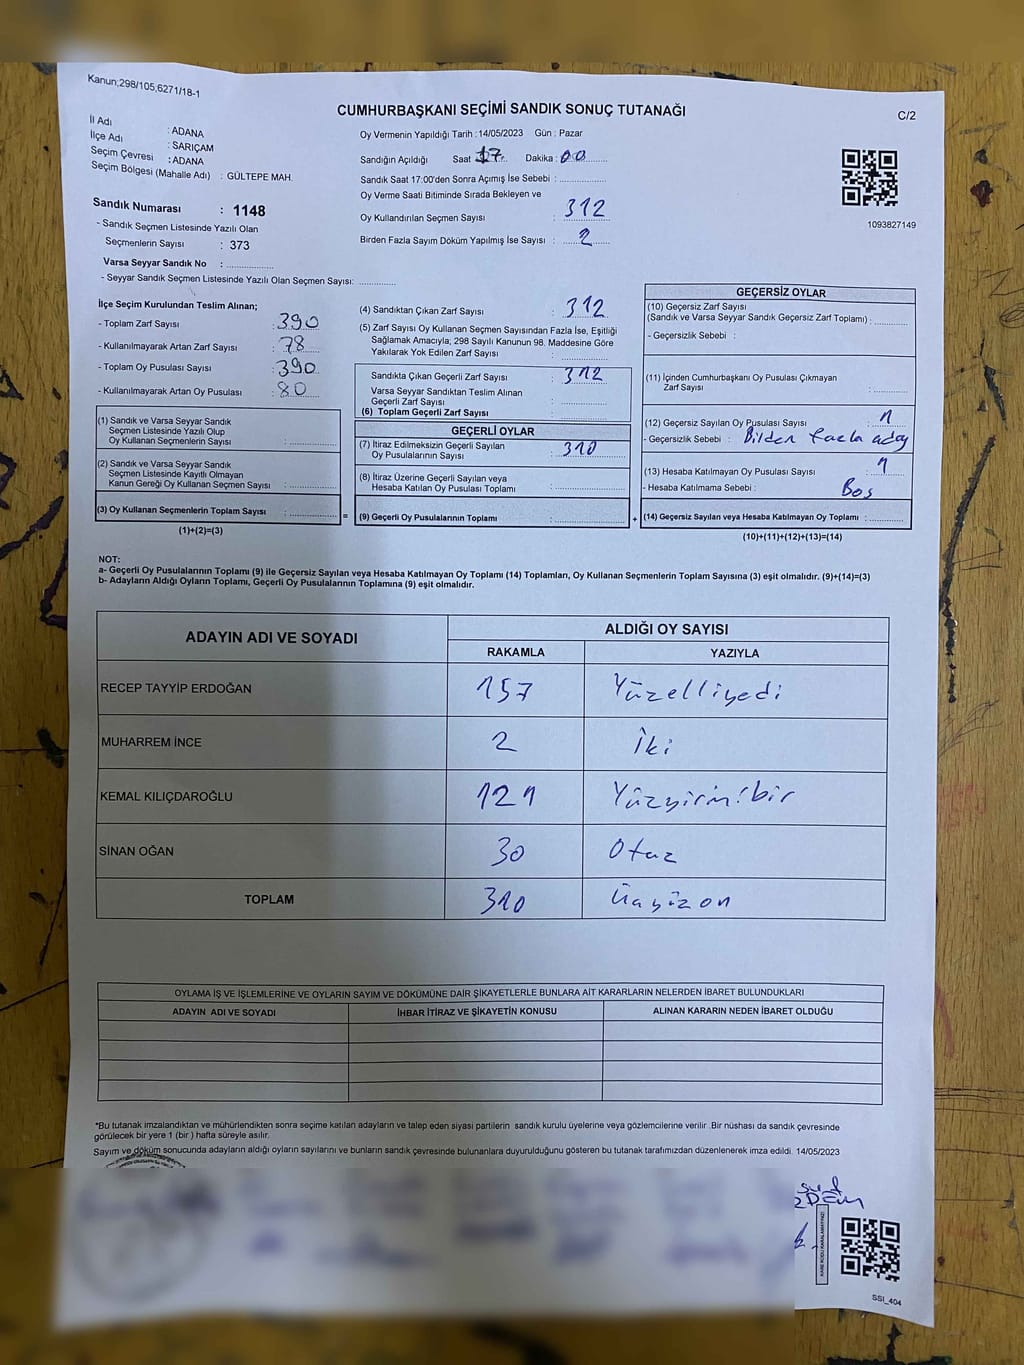 Kanun;298/105,6271/18-1
CUMHURBAŞKANI SEÇİMİ SANDIK SONUÇ TUTANAĞI
C/2
İl Adı : ADANA
İlçe Adı : SARIÇAM
Seçim Çevresi : ADANA
Seçim Bölgesi (Mahalle Adı) : GÜLTEPE MAH.
Oy Vermenin Yapıldığı Tarih : 14/05/2023 Gün : Pazar
Sandığın Açıldığı Saat 17 Dakika : 00
Sandık Saat 17:00'den Sonra Açımış İse Sebebi :
Oy Verme Saati Bitiminde Sırada Bekleyen ve
Oy Kullandırılan Seçmen Sayısı : 312
Birden Fazla Sayım Döküm Yapılmış İse Sayısı : 2
1093827149
Sandık Numarası : 1148
- Sandık Seçmen Listesinde Yazılı Olan
Seçmenlerin Sayısı : 373
Varsa Seyyar Sandık No :
- Seyyar Sandık Seçmen Listesinde Yazılı Olan Seçmen Sayısı:
İlçe Seçim Kurulundan Teslim Alınan;
- Toplam Zarf Sayısı : 390
- Kullanılmayarak Artan Zarf Sayısı : 78
- Toplam Oy Pusulası Sayısı : 390
- Kullanılmayarak Artan Oy Pusulası : 80
(1) Sandık ve Varsa Seyyar Sandık
Seçmen Listesinde Yazılı Olup
Oy Kullanan Seçmenlerin Sayısı :
(2) Sandık ve Varsa Seyyar Sandık
Seçmen Listesinde Kayıtlı Olmayan
Kanun Gereği Oy Kullanan Seçmen Sayısı :
(3) Oy Kullanan Seçmenlerin Toplam Sayısı :
(1)+(2)=(3)
=
(4) Sandıktan Çıkan Zarf Sayısı : 312
(5) Zarf Sayısı Oy Kullanan Seçmen Sayısından Fazla İse, Eşitliği
Sağlamak Amacıyla; 298 Sayılı Kanunun 98. Maddesine Göre
Yakılarak Yok Edilen Zarf Sayısı :
Sandıkta Çıkan Geçerli Zarf Sayısı : 312
Varsa Seyyar Sandıktan Teslim Alınan
Geçerli Zarf Sayısı :
(6) Toplam Geçerli Zarf Sayısı :
GEÇERLİ OYLAR
(7) İtiraz Edilmeksizin Geçerli Sayılan
Oy Pusulalarının Sayısı : 310
(8) İtiraz Üzerine Geçerli Sayılan veya
Hesaba Katılan Oy Pusulası Toplamı :
(9) Geçerli Oy Pusulalarının Toplamı :
+
GEÇERSİZ OYLAR
(10) Geçersiz Zarf Sayısı
(Sandık ve Varsa Seyyar Sandık Geçersiz Zarf Toplamı) :
- Geçersizlik Sebebi :
(11) İçinden Cumhurbaşkanı Oy Pusulası Çıkmayan
Zarf Sayısı :
(12) Geçersiz Sayılan Oy Pusulası Sayısı : 1
- Geçersizlik Sebebi : Birden fazla aday
(13) Hesaba Katılmayan Oy Pusulası Sayısı : 1
- Hesaba Katılmama Sebebi : Boş
(14) Geçersiz Sayılan veya Hesaba Katılmayan Oy Toplamı :
(10)+(11)+(12)+(13)=(14)
NOT:
a- Geçerli Oy Pusulalarının Toplamı (9) ile Geçersiz Sayılan veya Hesaba Katılmayan Oy Toplamı (14) Toplamları, Oy Kullanan Seçmenlerin Toplam Sayısına (3) eşit olmalıdır. (9)+(14)=(3)
b- Adayların Aldığı Oyların Toplamı, Geçerli Oy Pusulalarının Toplamına (9) eşit olmalıdır.
ADAYIN ADI VE SOYADI
ALDIĞI OY SAYISI
RAKAMLA YAZIYLA
RECEP TAYYİP ERDOĞAN 157 Yüzelliyedi
MUHARREM İNCE 2 İki
KEMAL KILIÇDAROĞLU 121 Yüzyirmibir
SİNAN OĞAN 30 Otuz
TOPLAM 310 Üçyüzon
OYLAMA İŞ VE İŞLEMLERİNE VE OYLARIN SAYIM VE DÖKÜMÜNE DAİR ŞİKAYETLERLE BUNLARA AİT KARARLARIN NELERDEN İBARET BULUNDUKLARI
ADAYIN ADI VE SOYADI İHBAR İTİRAZ VE ŞİKAYETİN KONUSU ALINAN KARARIN NEDEN İBARET OLDUĞU
*Bu tutanak imzalandıktan ve mühürlendikten sonra seçime katılan adayların ve talep eden siyasi partilerin sandık kurulu üyelerine veya gözlemcilerine verilir .Bir nüshası da sandık çevresinde
görülecek bir yere 1 (bir ) hafta süreyle asılır.
Sayım ve döküm sonucunda adayların aldığı oyların sayılarını ve bunların sandık çevresinde bulunanlara duyurulduğunu gösteren bu tutanak tarafımızdan düzenlenerek imza edildi. 14/05/2023
KARE KODU KARALAMAYINIZ!
SSI_404